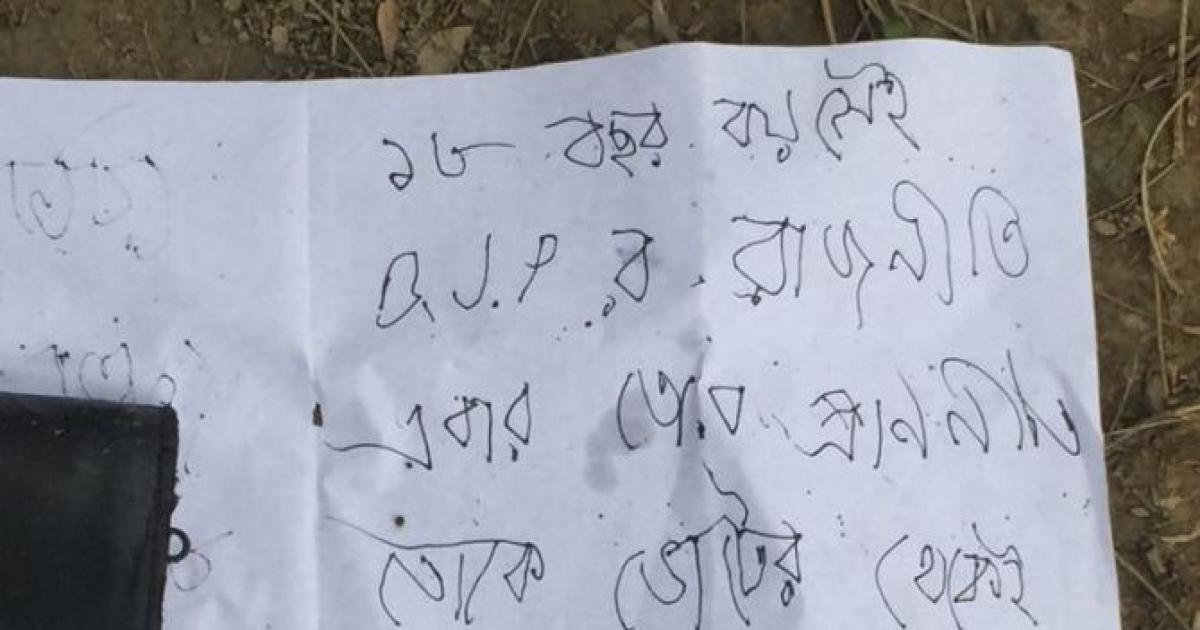 ১৮ বছর বয়সেই
B.J.P র রাজনীতি
এবার তোর প্রান নীল
তোকে ভোটের থেকেই